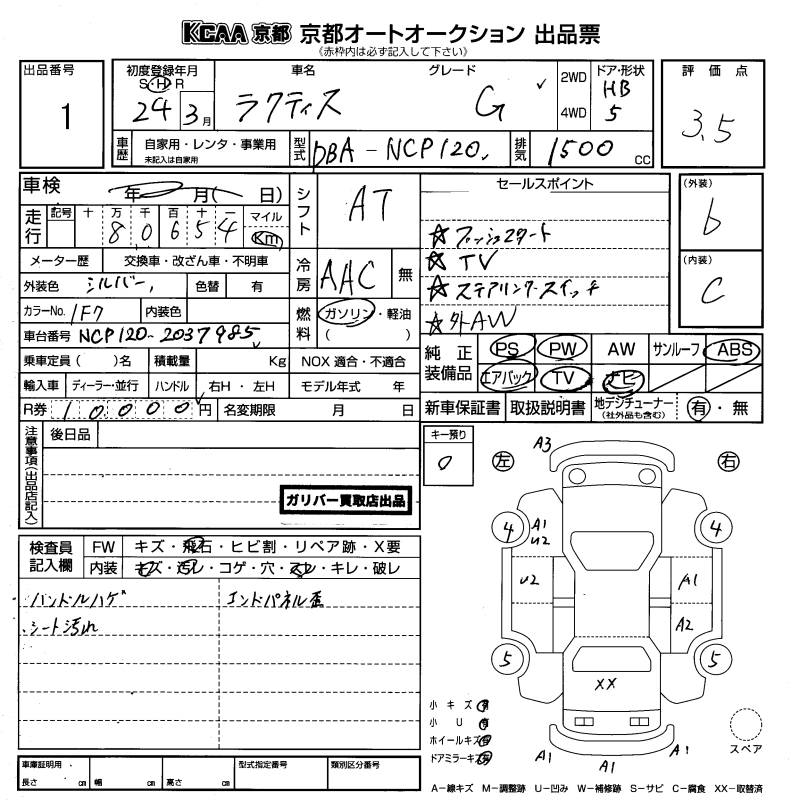 KCAA 京都 京都オートオークション 出品票
《赤枠内は必ず記入して下さい》
出品番号
1
初度登録年月
S・H・R
24 3月
車名
ラクティス
グレード
G
2WD
4WD
ドア・形状
HB
5
評価点
3.5
車歴
自家用・レンタ・事業用
未記入は自家用
型式
DBA-NCP120
排気
1500 cc
車検
年 月( 日)
シフト
AT
セールスポイント
☆プッシュスタート
☆TV
☆ステアリングスイッチ
☆外AW
(外装)
b
(内装)
C
走行
記号 十 万 千 百 十 一 マイル
8 0 6 5 4 Km
メーター歴 交換車・改ざん車・不明車
冷房
AAC 無
外装色 シルバー 色替 有
カラーNo. 1F7 内装色
燃料
ガソリン・軽油
( )
車台番号 NCP120-2037985
乗車定員 ( )名 積載量 Kg NOX 適合・不適合
輸入車 ディーラー・並行 ハンドル 右H・左H モデル年式 年
R券 10000円 名変期限 月 日
純正装備品
PS PW AW サンルーフ ABS
エアバック TV ナビ
新車保証書 取扱説明書 地デジチューナー
(社外品も含む)
有・無
注意事項(出品店記入)
後日品
ガリバー買取店出品
キー預り
0
検査員記入欄
FW キズ・飛石・ヒビ割・リペア跡・X要
内装 キズ・汚レ・コゲ・穴・スレ・キレ・破レ
ハンドルハゲ
シート汚れ
エンドパネル歪
左
右
A3
4
A1
U2
4
U2
A1
A2
5
5
XX
小キズ有
小U有
ホイールキズ有
ドアミラーキズ有
A1
A1
A1
スペア
車庫証明用
長さ cm 幅 cm 高さ cm
型式指定番号
類別区分番号
A-線キズ M-調整跡 U-凹み W-補修跡 S-サビ C-腐食 XX-取替済